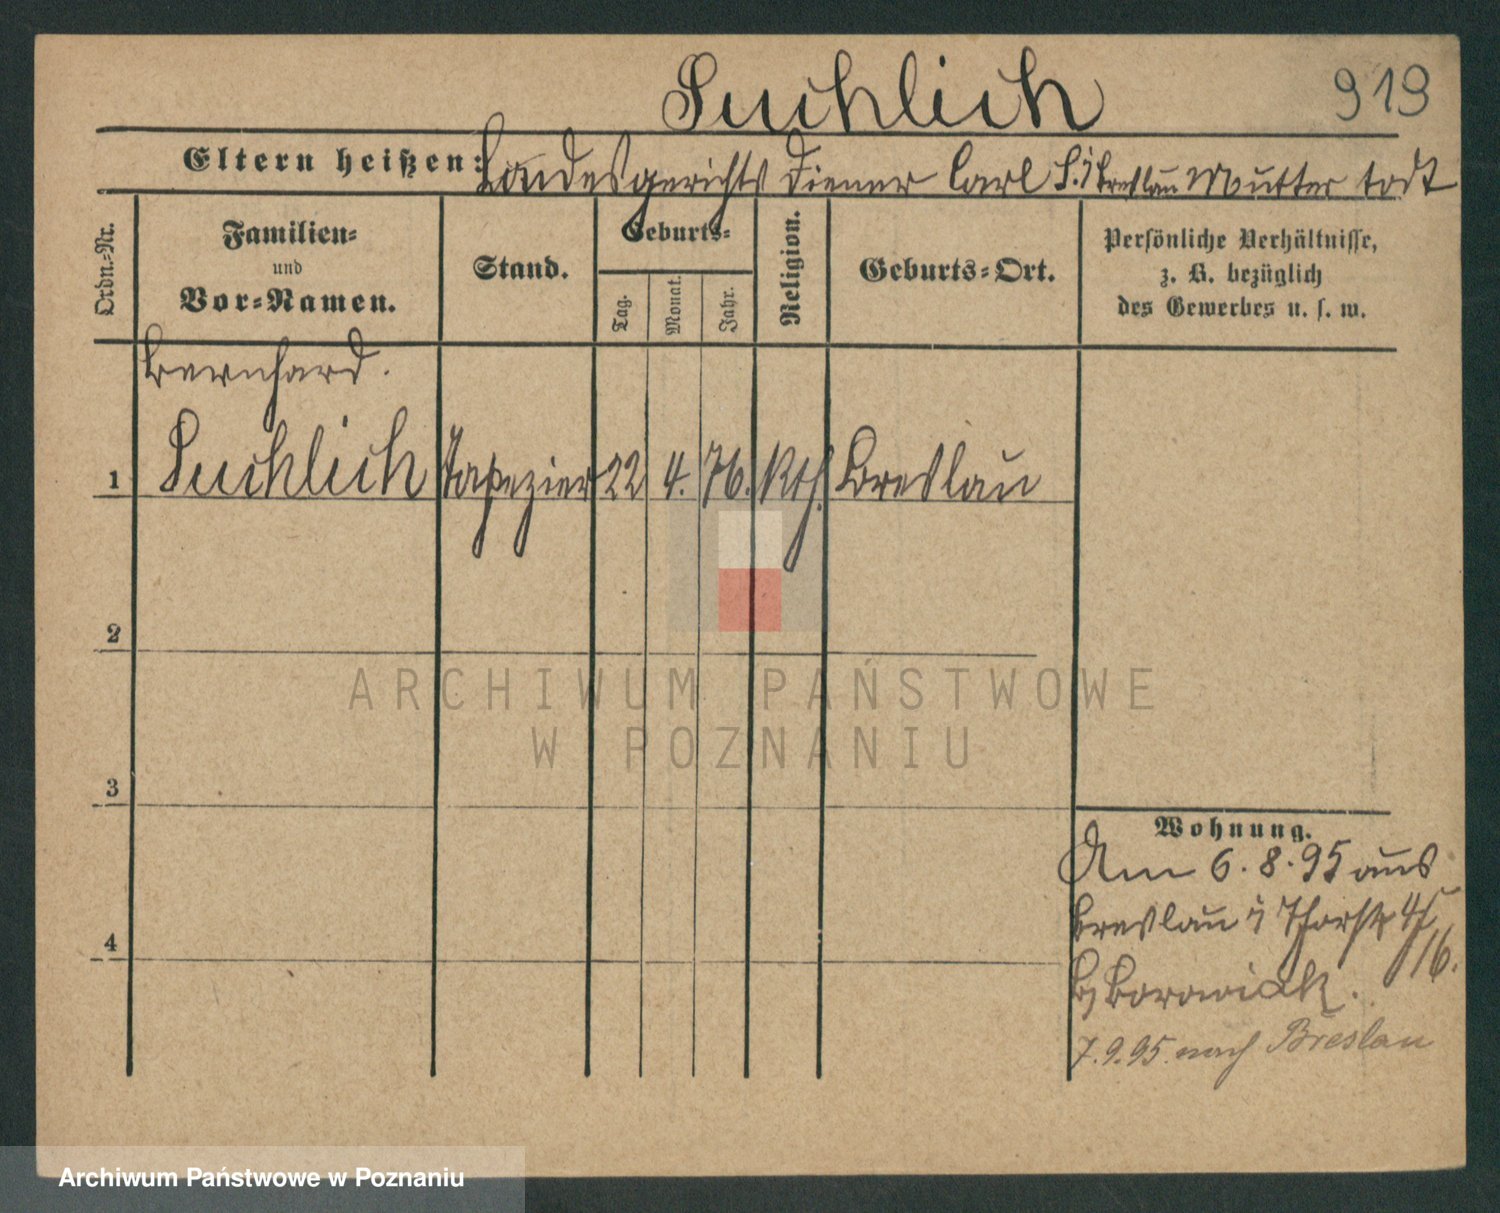 Suchlich
919
Eltern heißen: Landesgerichts Diener Carl S. i Breslau Mutter todt
Ordn.-Nr.
Familien-
und
Vor-Namen.
Stand.
Geburts-
Tag.
Monat.
Jahr.
Religion.
Geburts-Ort.
Persönliche Verhältnisse,
z. B. bezüglich
des Gewerbes u. s. w.
Bernhard.
1 Suchlich Tapezier 22 4. 76. Kth. Breslau
2
ARCHIWUM PAŃSTWOWE
W POZNANIU
3
Wohnung.
Am 6. 8. 95 aus
Breslau i
4
b/ Borowiak.
7. 9. 95. nach Breslau
Archiwum Państwowe w Poznaniu